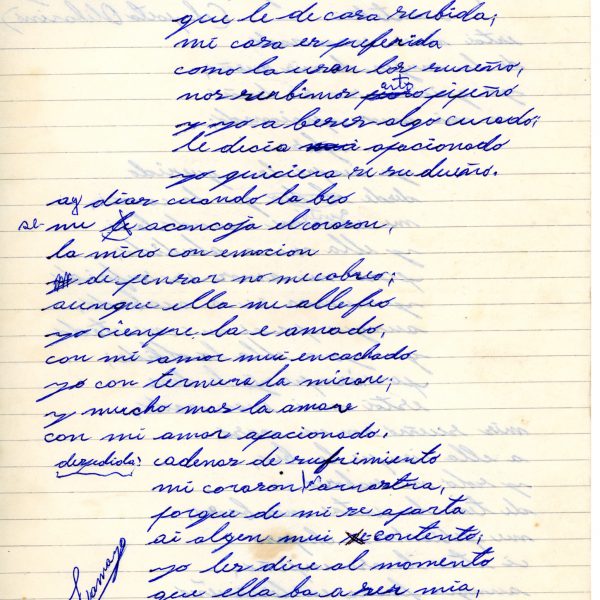 que le de casa serbida;
mi casa es peferida
como la usan los sureño,
nos serbimos arto pipeño
y yo a beses algo curado;
le decia apacionado
yo quiciera ser su dueño.
ay dias cuando la beo
se mi acancoja el corason,
la miro con emocion
de pensar no me cabreo;
aunque ella me alle feo
yo ciempre la e amado,
con mi amor mui encachado
yo con ternura la mirare;
y mucho mas la amare
con mi amor apacionado.
despedida: cadenas de sufrimiento
mi corason arrastra,
porque de mi se aparta
ai algen mui contento;
yo les dire al momento
que ella ba a ser mia,